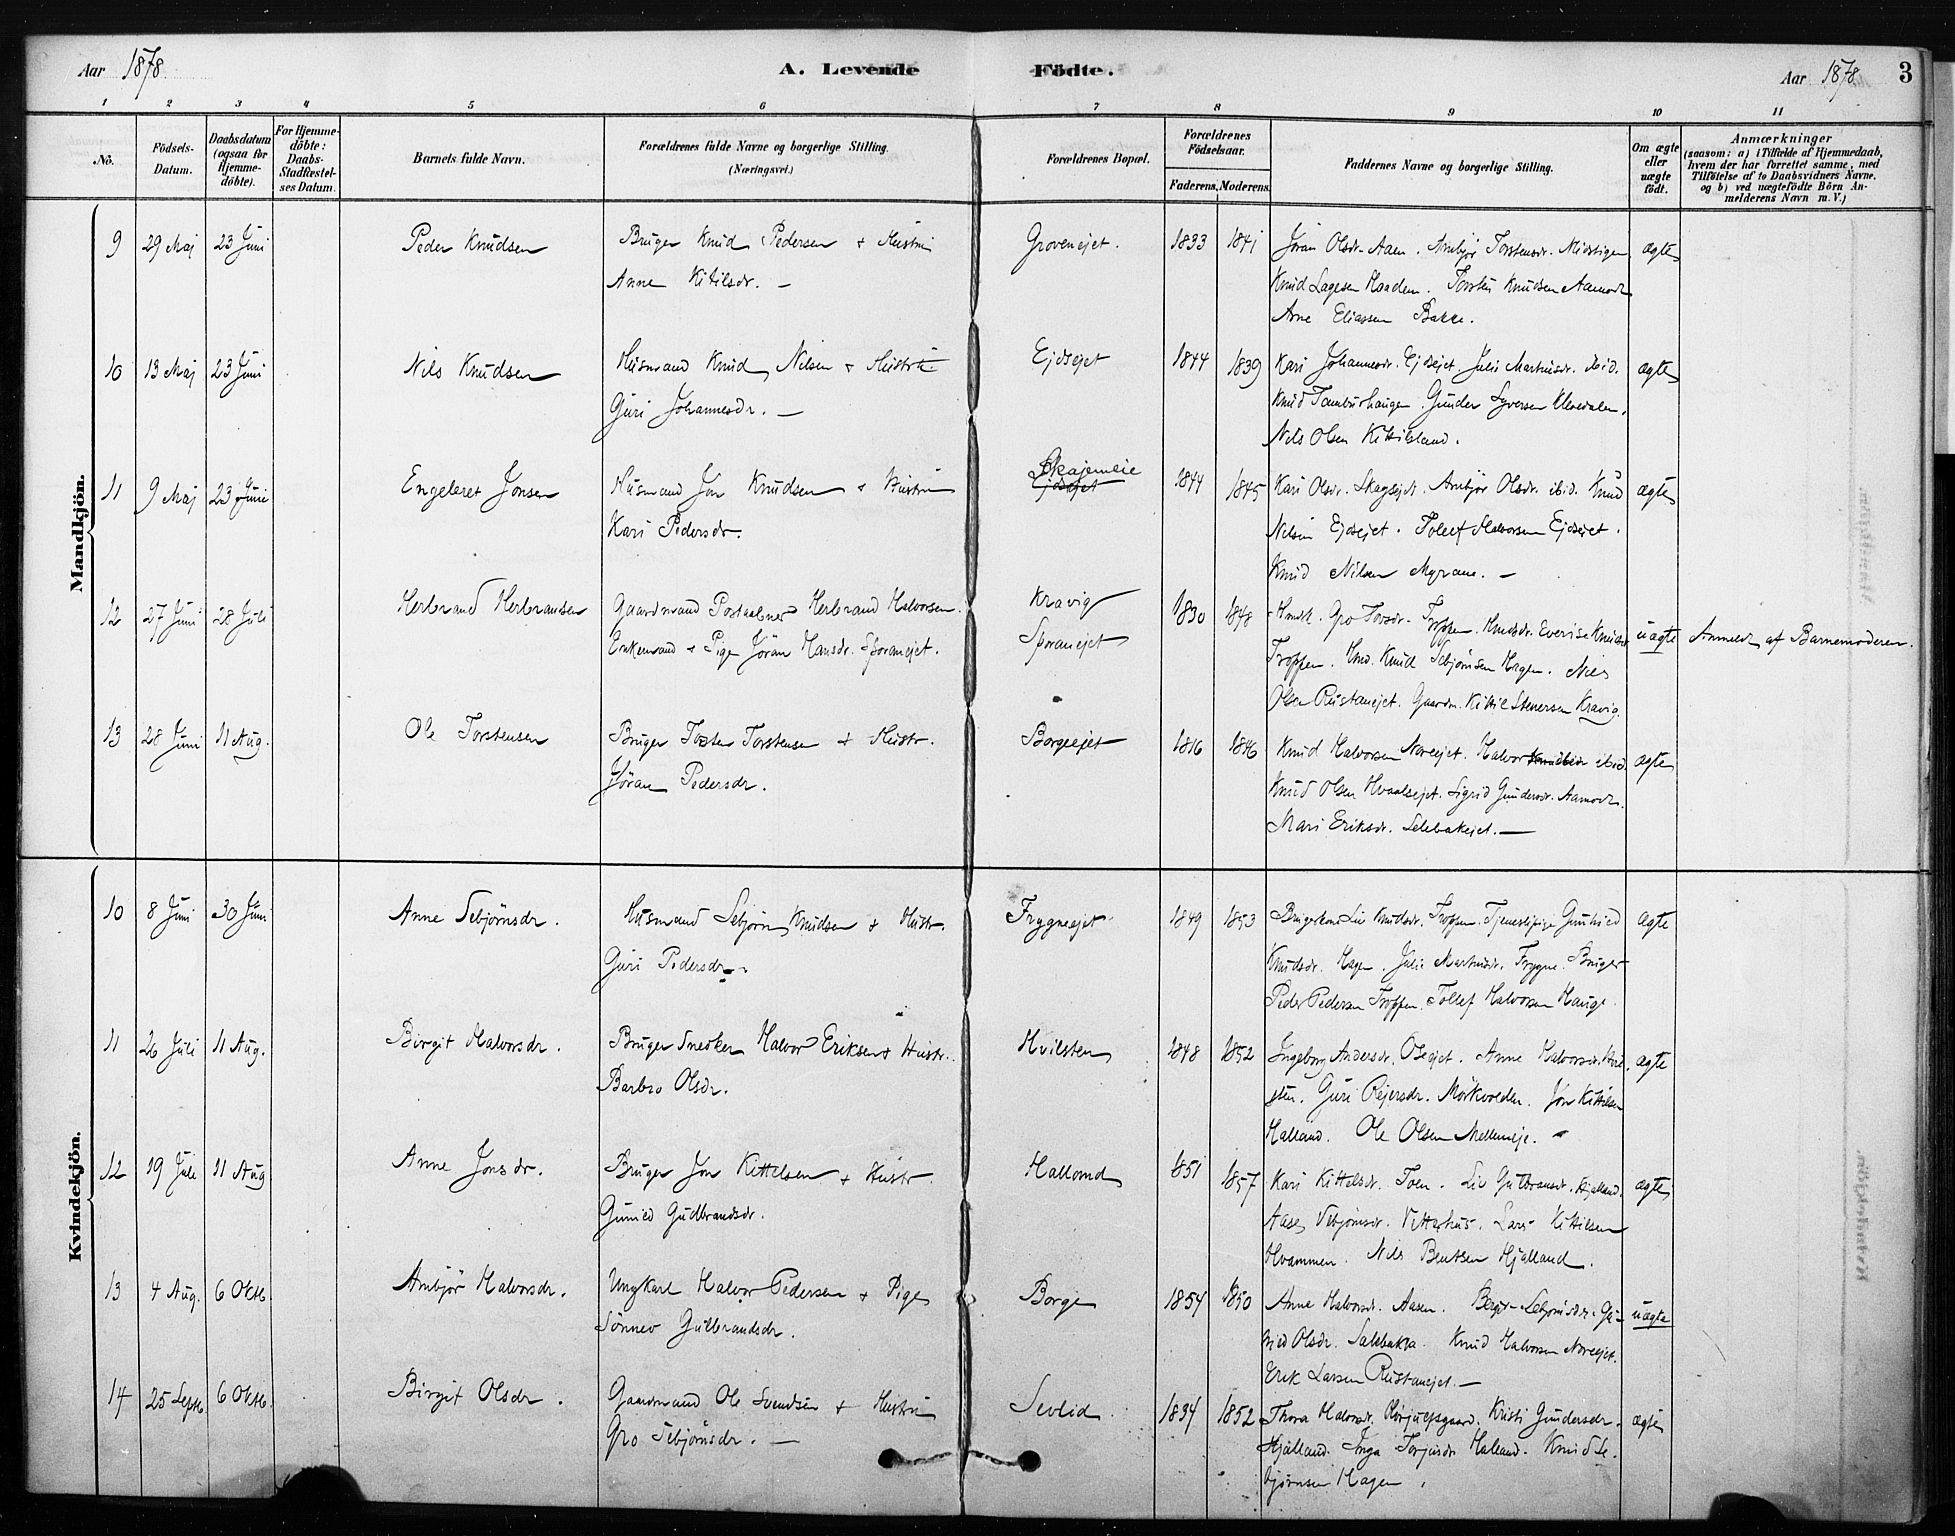 Aar 1878 A. Levende Födte. Aar 1878 3
1 2 3 4 5 6 7 8 9 10 11
No. Födsels-Datum. Daabsdatum (ogsaa for Hjemme-döbte). For Hjemme-döbte: Daabs-Stadfæstel-ses Datum. Barnets fulde Navn. Forældrenes fulde Navne og borgerlige Stilling. (Næringsvei.) Forældrenes Bopæl. Forældrenes Födselsaar. Faderens. Moderens. Faddernes Navne og borgerlige Stilling. Om ægte eller uægte födt. Anmærkninger (saasom: a) i Tilfælde af Hjemmedaab, hvem der har forrettet samme, med Tilföielse af to Daabsvidners Navne. og b) ved uægtefödte Börn An-melderens Navn m. V.)
Mandkjön.
9 29 Maj 23 Juni Peder Knudsen Bruger Knud Pedersen + Hustru Groveneiet. 1833 1841 Jöran Olsdr. Aasen. Arnbjör Torstensdr. Midstigen ægte
Anne Kitilsdr. — Knud Lagesen Haadem. Torsten Knudsen Aamodt
Arne Eliassen Bakke.
10 13 Maj 23 Juni Nils Knudsen Husmand Knud Nilsen + Hustru Ejdsejet 1844 1839 Kari Johannesdr. Ejdsejet. Julie Martinsdr. ibid. ægte
Guri Johannesdr. — Knud Tamburhaugen. Gunder Syversen
Nils Olsen Kittilsland.
11 9 Maj 23 Juni Engebret Jonsen Husmand Jon Knudsen + Hustru Skajemeie Ejdsejet 1844 1845 Kari Olsdr. Skagsejet. Arnbjör Olsdr. ibid. Knud ægte
Kari Pedersdr. Nilsen Ejdsejet. Tollef Halvorsen Ejdsejet.
Knud Nilsen Myrane. —
12 27 Juni 28 Juli Herbrand Herbrandsen Gaardmand Postaabner Herbrand Halvorsen Kravig 1830 1848 Gro Tovsdr. Troppen. Knudsdr. uægte Anmeldt af Barnemoderen.
Enkemand + Pige Jöran Hansdr. Sporanejet. Sporanejet Troppen. Knud Sebjörnsen Hagen. Nils
Olsen Rustanejet. Gaardm. Kittil Stenersen Kravig.
13 28 Juni 11 Aug. Ole Torstensen Bruger Tosten Torstensen + Hustr. Borgeejet 1816 1846 Knud Halvorsen Noreejet. Halvor Knudsen ibid. ægte
Jöran Pedersdr. Knud Olsen Hvaalsejet. Sigrid Gundersdr. Aamodt.
Mari Eriksdr. Selebakejet. —
Kvindekjön.
10 8 Juni 30 Juni Anne Sebjörnsdr. Husmand Sebjörn Knudsen + Hustr. Frygneejet 1849 1853 Brugerkone Liv Knudsdr. Troppen. Tjenestepige Gunhild ægte
Guri Pedersdr. Knudsdr. Hagen. Julie Martinsdr. Frygne. Bruger
Peder Pedersen Troppen. Tollef Halvorsen Hauge.
11 26 Juli 11 Aug. Birgit Halvorsdr. Bruger Snedker Halvor Eriksen + Hustr. Hvilsten 1848 1852 Ingeborg Andersdr. Oleejet. Anne Halvorsdr. Hvil- ægte
Barbro Olsdr. sten. Guri Rejersdr. Mörkvolden. Jon Kittilsen
Halland. Ole Olsen Mellemeje.
12 19 Juli 11 Aug Anne Jonsdr. Bruger Jon Kittelsen + Hustr. Halland 1851 1857 Kari Kittelsdr. Toen. Liv Gulbransdr. Hjalland. ægte
Gunild Gudbrandsdr. Aase Sebjörnsdr. Vetterhus. Lars Kittilsen
Hvammen. Nils Bentsen Hjalland.
13 4 Aug. 6 Oktb. Arnbjör Halvorsdr. Ungkarl Halvor Pedersen + Pige Borge 1854 1850 Anne Halvorsdr. Aasen. Berget Sebjörnsdr. Gu- uægte
Sönnev Gulbrandsdr. nild Olsdr. Selebakka. Knud Halvorsen Noreejet.
Erik Larsen Rustanejet. —
14 25 Septb. 6 Oktb. Birgit Olsdr. Gaardmand Ole Svendsen + Hustru Sevlid 1834 1852 Thora Halvorsdr. Kristi Gundersdr. ægte
Gro Sebjörnsdr. — Hjalland. Inga Torjusdr. Halland. Knud Se-
björnsen Hagen.